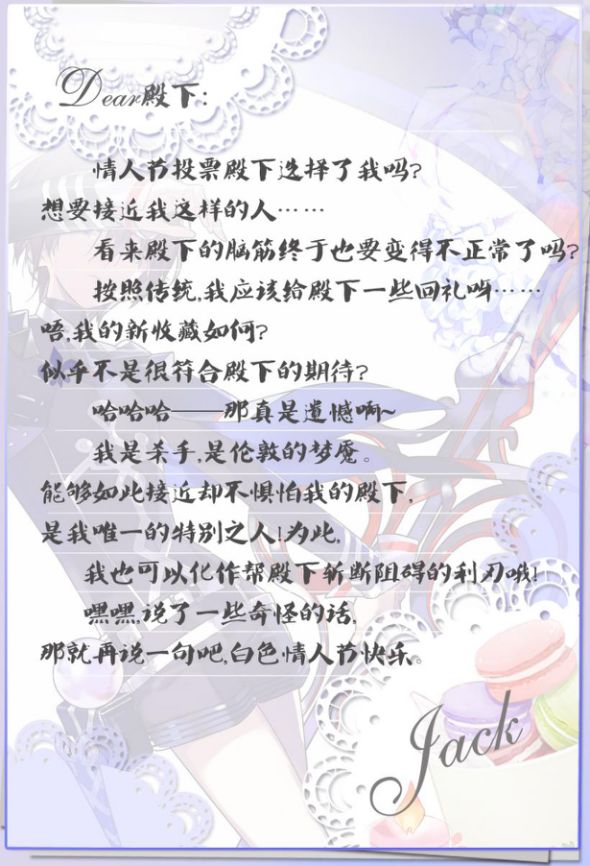 Dear殿下:
情人节投票殿下选择了我吗?
想要接近我这样的人……
看来殿下的脑筋终于也要变得不正常了吗?
按照传统,我应该给殿下一些回礼呦……
唔,我的新收藏如何?
似乎不是很符合殿下的期待?
哈哈哈——那真是遗憾啊~
我是杀手,是伦敦的梦魇。
能够如此接近却不惧怕我的殿下,
是我唯一的特别之人!为此,
我也可以化作帮殿下斩断阻碍的利刃哦!
嘿嘿,说了一些奇怪的话,
那就再说一句吧,白色情人节快乐。
Jack